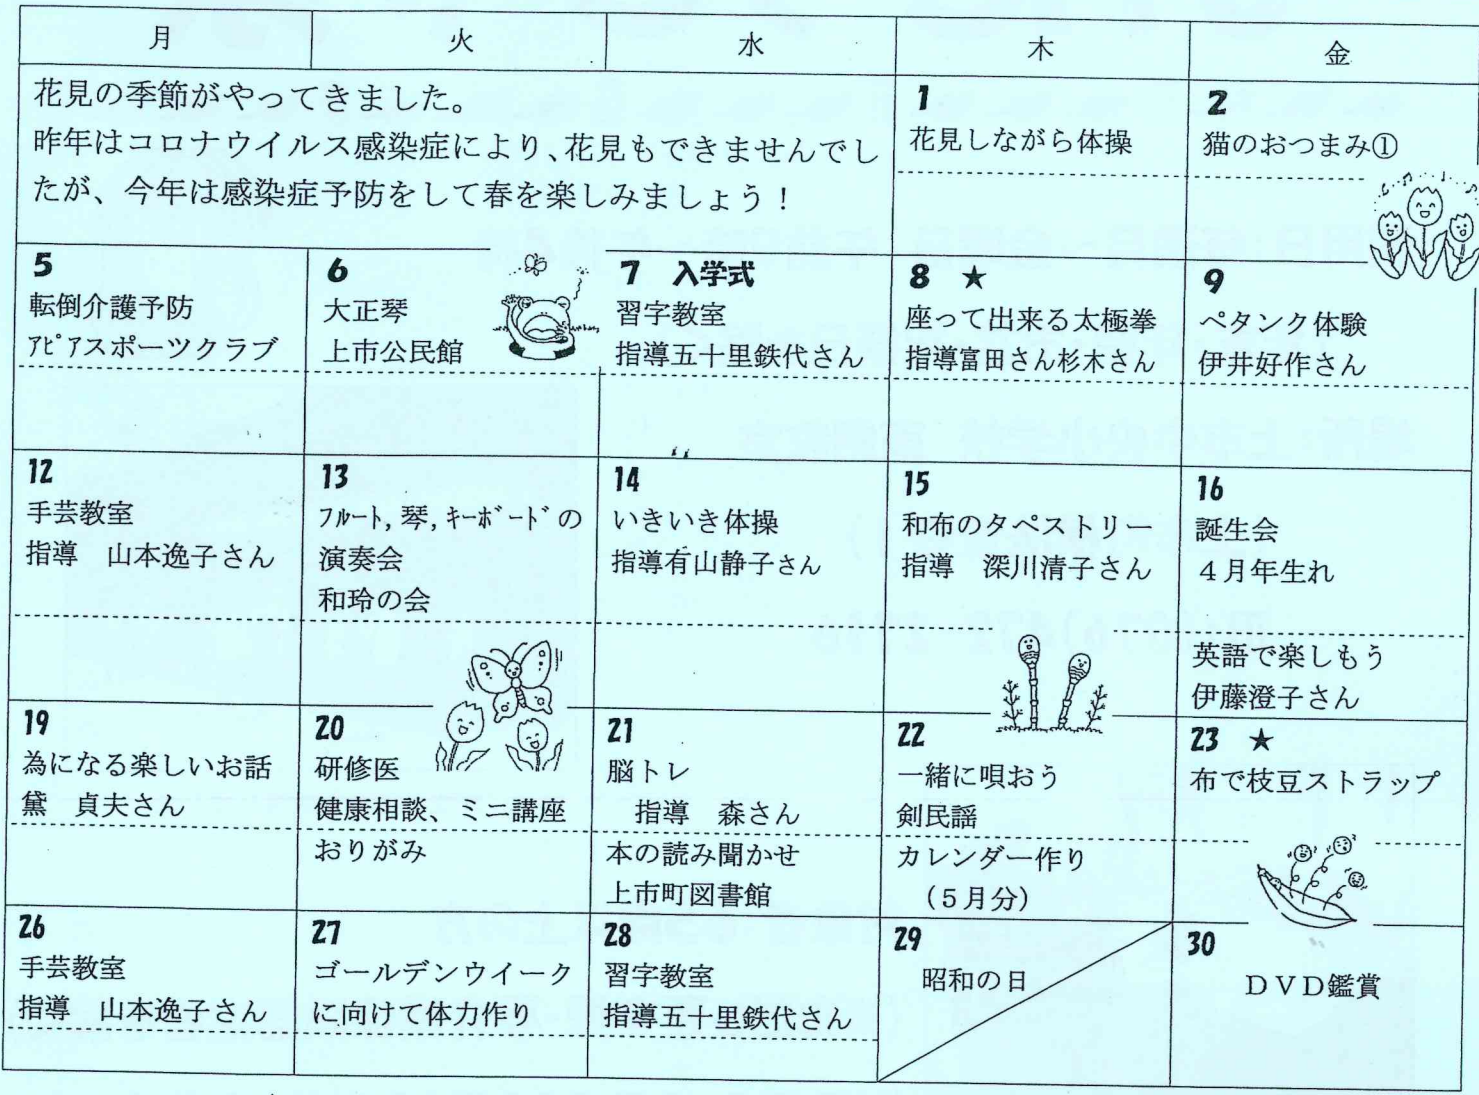 月 火 水 木 金
花見の季節がやってきました。
昨年はコロナウイルス感染症により、花見もできませんでし
たが、今年は感染症予防をして春を楽しみましょう！
1
花見しながら体操
2
猫のおつまみ①
5
転倒介護予防
ｱﾋﾟｱスポーツクラブ
6
大正琴
上市公民館
7 入学式
習字教室
指導五十里鉄代さん
8 ★
座って出来る太極拳
指導富田さん杉木さん
9
ペタンク体験
伊井好作さん
12
手芸教室
指導 山本逸子さん
13
ﾌﾙｰﾄ,琴,ｷｰﾎﾞｰﾄﾞの
演奏会
和玲の会
14
いきいき体操
指導有山静子さん
15
和布のタペストリー
指導 深川清子さん
16
誕生会
４月年生れ
英語で楽しもう
伊藤澄子さん
19
為になる楽しいお話
黛 貞夫さん
20
研修医
健康相談、ミニ講座
おりがみ
21
脳トレ
指導 森さん
本の読み聞かせ
上市町図書館
22
一緒に唄おう
剣民謡
カレンダー作り
（５月分）
23 ★
布で枝豆ストラップ
26
手芸教室
指導 山本逸子さん
27
ゴールデンウイーク
に向けて体力作り
28
習字教室
指導五十里鉄代さん
29
昭和の日
30
ＤＶＤ鑑賞